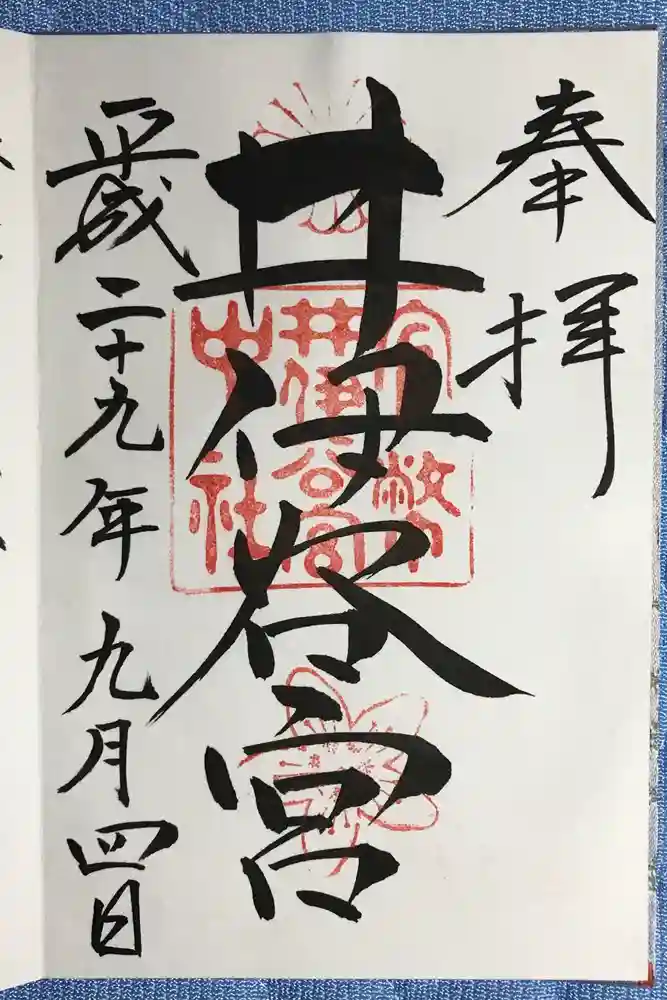 奉拝
井伊谷宮
官幣
井伊谷宮
中社
平成二十九年九月四日